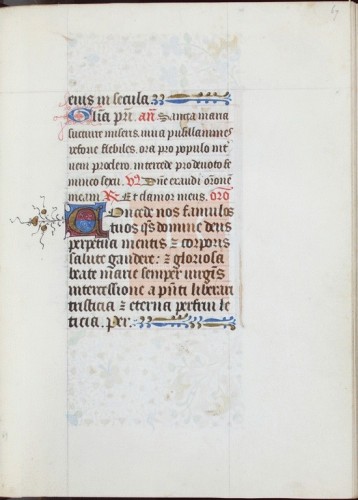 eius in secula.
Glīa pr̄i. an̄. Sancta maria
succurre miseris. iuua pusillanimes
refoue flebiles. ora pro populo inter
ueni pro clero. intercede pro deuoto fe
mineo sexu. V. Dn̄e exaudi or̄onē
meam R. Et clamor meus. oro
Concede nos famulos
tuos q̄s domine deus
perpetua mentis ⁊ corporis
salute gaudere: ⁊ gloriosa
beate marie semper uirgīs
intercessione a pn̄ti liberari
tristicia ⁊ eterna perfrui le
ticia. Per.